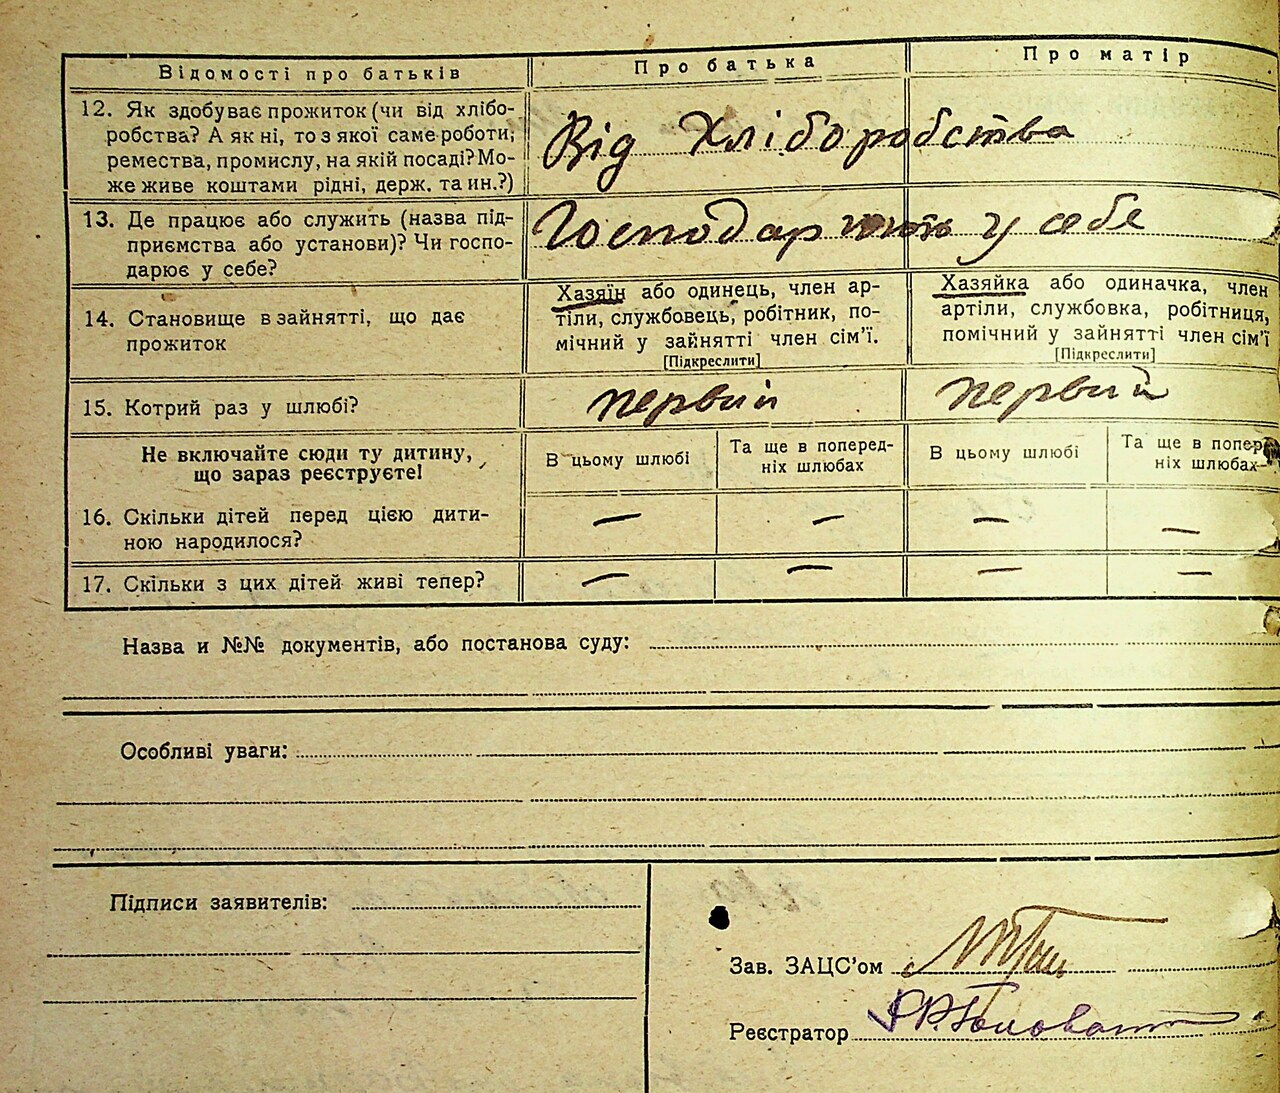 Відомості про батьків
Про батька
Про матір
12. Як здобуває прожиток (чи від хлібо-
робства? А як ні, то з якої саме роботи,
ремества, промислу, на якій посаді? Мо-
же живе коштами рідні, держ. та ин.?)
Від Хліборобства
13. Де працює або служить (назва під-
приємства або установи)? Чи госпо-
дарює у себе?
Господарюють у себе
14. Становище в зайнятті, що дає
прожиток
Хазяїн або одинець, член ар-
тіли, службовець, робітник, по-
мічний у зайнятті член сім'ї.
[Підкреслити]
Хазяйка або одиначка, член
артіли, службовка, робітниця,
помічний у зайнятті член сім'ї
[Підкреслити]
15. Котрий раз у шлюбі?
первий
первий
Не включайте сюди ту дитину,
що зараз реєструєте!
В цьому шлюбі
Та ще в поперед-
ніх шлюбах
В цьому шлюбі
Та ще в попере
ніх шлюбах
16. Скільки дітей перед цією дити-
ною народилося?
—
—
—
—
17. Скільки з цих дітей живі тепер?
—
—
—
—
Назва и №№ документів, або постанова суду:
Особливі уваги:
Підписи заявителів:
Зав. ЗАЦС'ом
Реєстратор